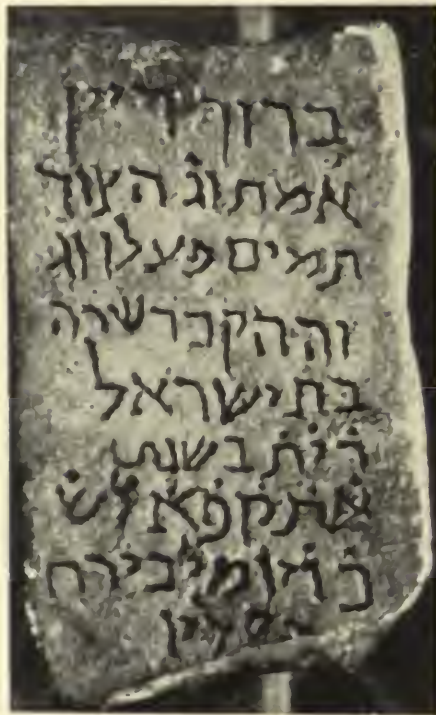 ברוך דיין
אמת וג הצור
תמים פעלו וג
וה הקבר שרה
בת ישראל
בשנת
אתקפא לש
לבירח